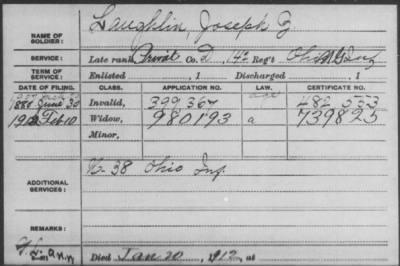 NAME OF SOLDIER: Laughlin, Joseph Z.
SERVICE: Late rank Privat Co. D, 14" Reg't Ohio Inf
TERM OF SERVICE: Enlisted , 1 Discharged , 1
DATE OF FILING. CLASS. APPLICATION NO. LAW. CERTIFICATE NO.
1880 June 30 Invalid, 399 367 482 553
1912 Feb 10 Widow, 980193 a 739825
Minor,
ADDITIONAL SERVICES: K-38 Ohio Inf
REMARKS:
Died Jan 20, 1912, at